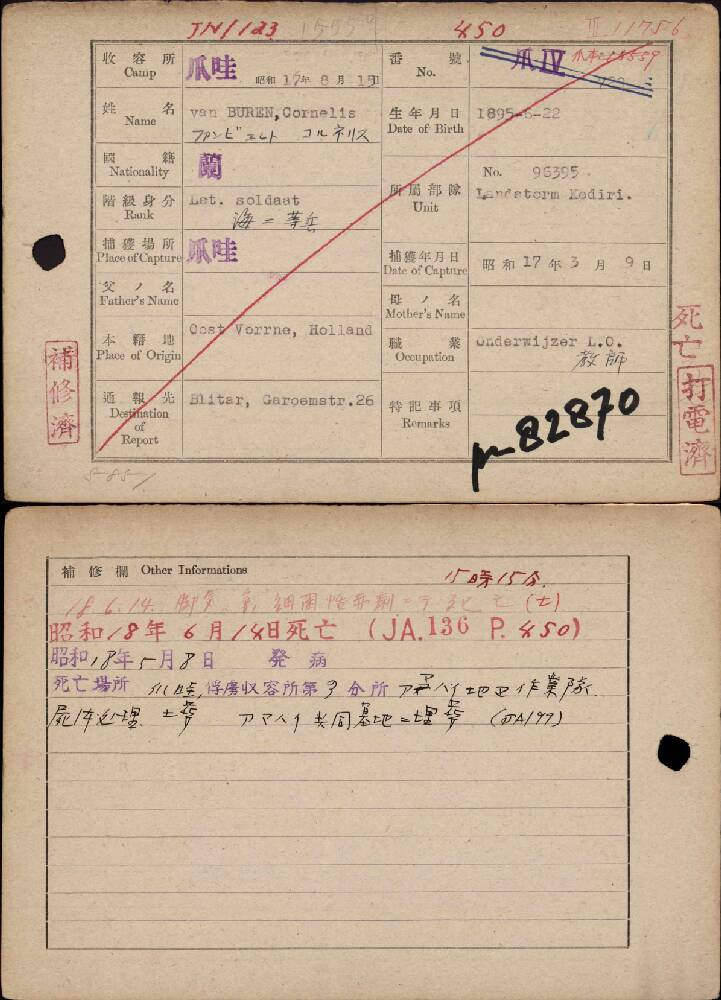 JN/123 15559 450 II 11756
收容所 Camp 爪哇 昭和17年8月15日 番號 No. 爪IV 爪本15559
姓名 Name van BUREN,Cornelis 生年月日 Date of Birth 1895-6-22
コルネリス
國籍 Nationality 蘭 所屬部隊 Unit No. 96395
階級身分 Rank Lst. soldaat Landstorm Kediri.
捕獲場所 Place of Capture 爪哇 捕獲年月日 Date of Capture 昭和17年3月9日
父ノ名 Father's Name 母ノ名 Mother's Name
本籍地 Place of Origin Oost Vorrne, Holland 職業 Occupation onderwijzer L.O.
教師
通報先 Destination of Report Blitar, Garoemstr.26 特記事項 Remarks
82870
補修濟
死亡
打電濟
補修欄 Other Informations
15時15分
18.6.14.
昭和18年6月14日死亡 (JA.136 P.450)
昭和18年5月8日 発病
死亡場所 爪哇俘虜収容所第3分所 アマハイ地区作業隊
屍体処理 土葬 アマハイ共同墓地ニ埋葬